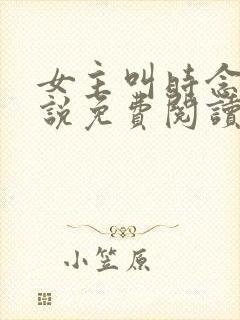 女主叫時念
說免費閱讀
小笠原